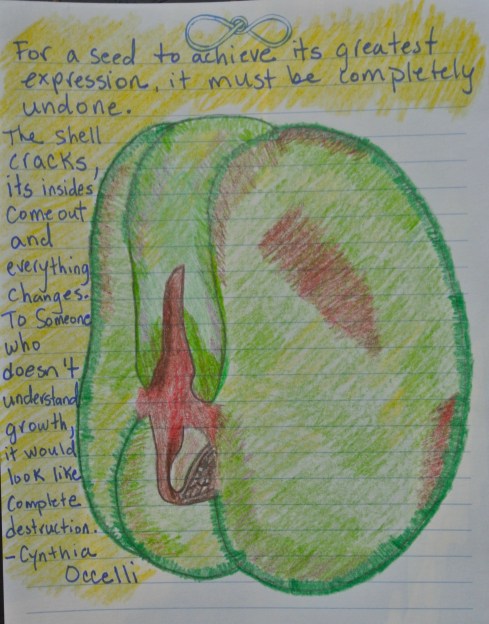 For a seed to achieve its greatest
expression, it must be completely
undone.
The shell
cracks,
its insides
come out
and
everything
changes.
To Someone
who
doesn't
understand
growth,
it would
look like
complete
destruction.
- Cynthia
Occelli